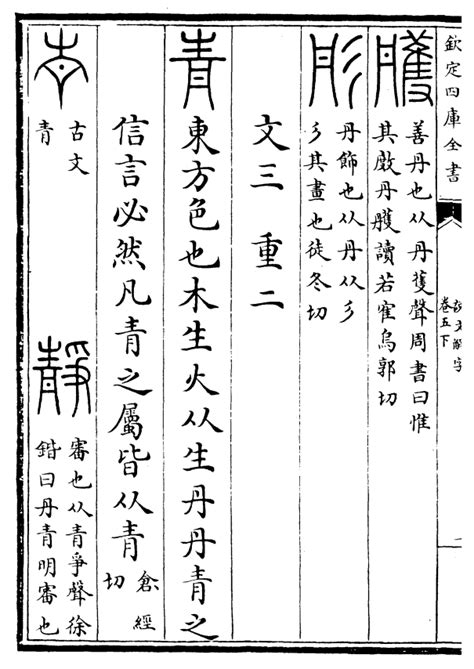 欽定四庫全書
說文解字
卷五下
一
雘
善丹也从丹蒦聲周書曰惟
其丹雘讀若隺烏郭切
彤
丹飾也从丹从彡
彡其畫也徒冬切
文三 重二
青 東方色也木生火从生丹丹青之
信言必然凡青之屬皆从青
倉經
切
古文
青
靜
審也从青爭聲徐
鍇曰丹青明審也